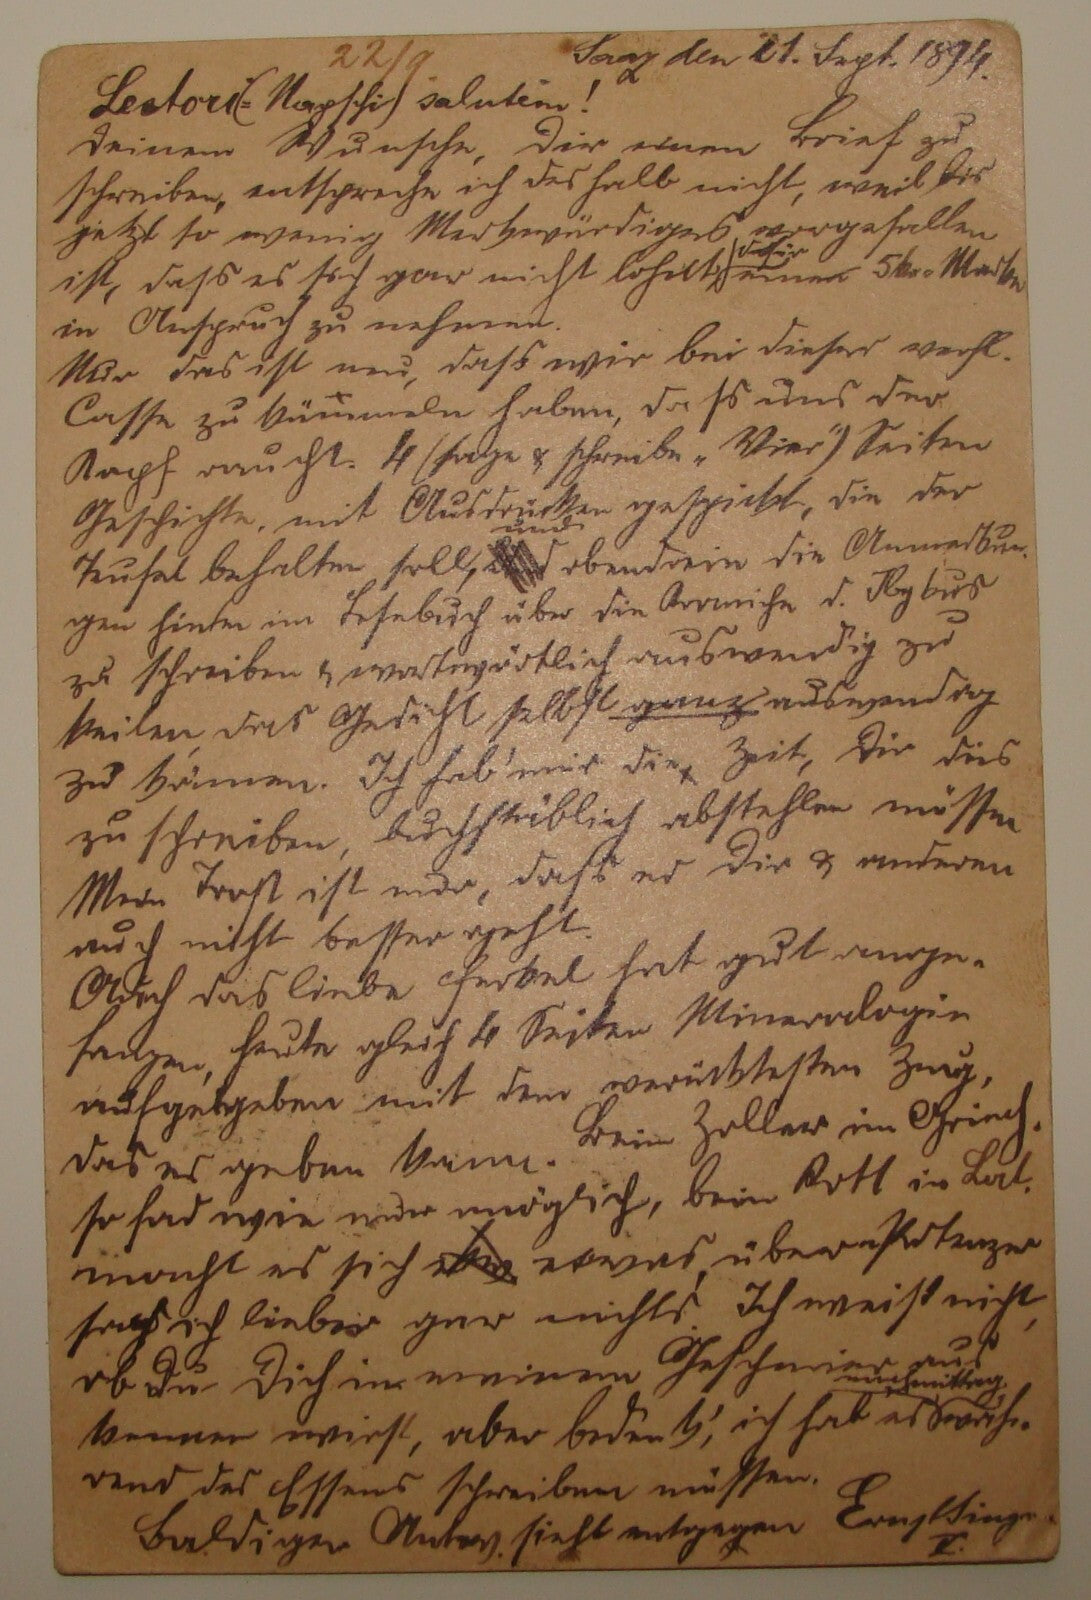 22/9 Saaz den 21. Sept. 1894.
Lectori (= Napschi) salutem!
Deinem Wunsche, Dir einen Brief zu
schreiben, entspreche ich deshalb nicht, weil bis
jetzt so wenig Merkwürdiges vorgefallen
ist, dass es sich gar nicht lohnt, dafür eine 5kr.-Marke
in Anspruch zu nehmen.
Nur das ist neu, dass wir bei dieser verfl.
Casse zu büffeln haben, dass uns der
Kopf raucht. 4 (sage & schreibe "Vier") Seiten
Geschichte, mit Ausdrücken gespickt, die der
Teufel behalten soll, und obendrein die Anmerkun-
gen hinten im Lesebuch über die Kraniche d. Ibykus
zu schreiben & wortwörtlich auswendig zu
keilen, das Gedicht selbst ganz auswendig
zu können. Ich hab' mir die Zeit, Dir dies
zu schreiben, buchstäblich abstehlen müssen
Mein Trost ist nur, dass es Dir & anderen
auch nicht besser geht.
Auch das liebe Ferkel hat gut ange-
fangen, heute gleich 4 Seiten Mineralogie
aufgegeben mit dem verücktesten Zeug,
das es geben kann. Beim Zoller im Griech.
so fad wie nur möglich, beim Rott in Lat.
macht es sich etwas, über
sag ich lieber gar nichts. Ich weiß nicht,
ob Du Dich in meinem Geschmier aus
kennen wirst, aber bedenk', ich hab es nachmittag, wäh-
rend des Essens schreiben müssen.
Baldiger Antw. sieht entgegen Ernst Singer
V.